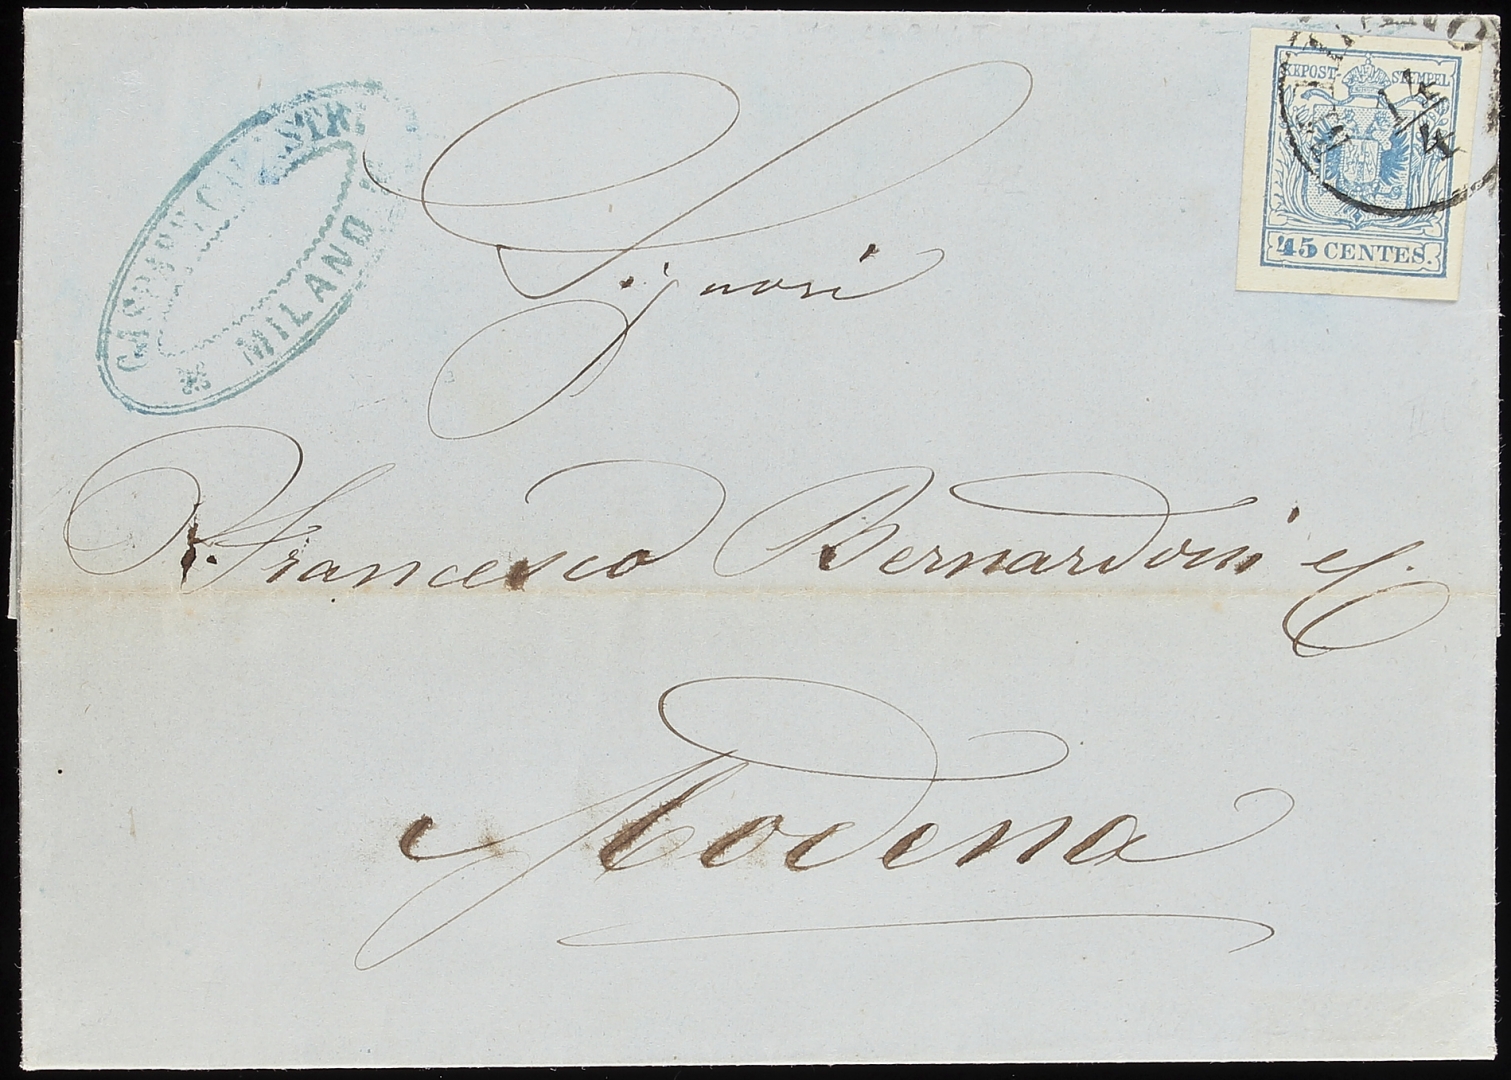 MILANO
14/4
KKPOST-STEMPEL
45 CENTES.
MILANO
Signori
F. Francesco Bernardoni e C.
Modena